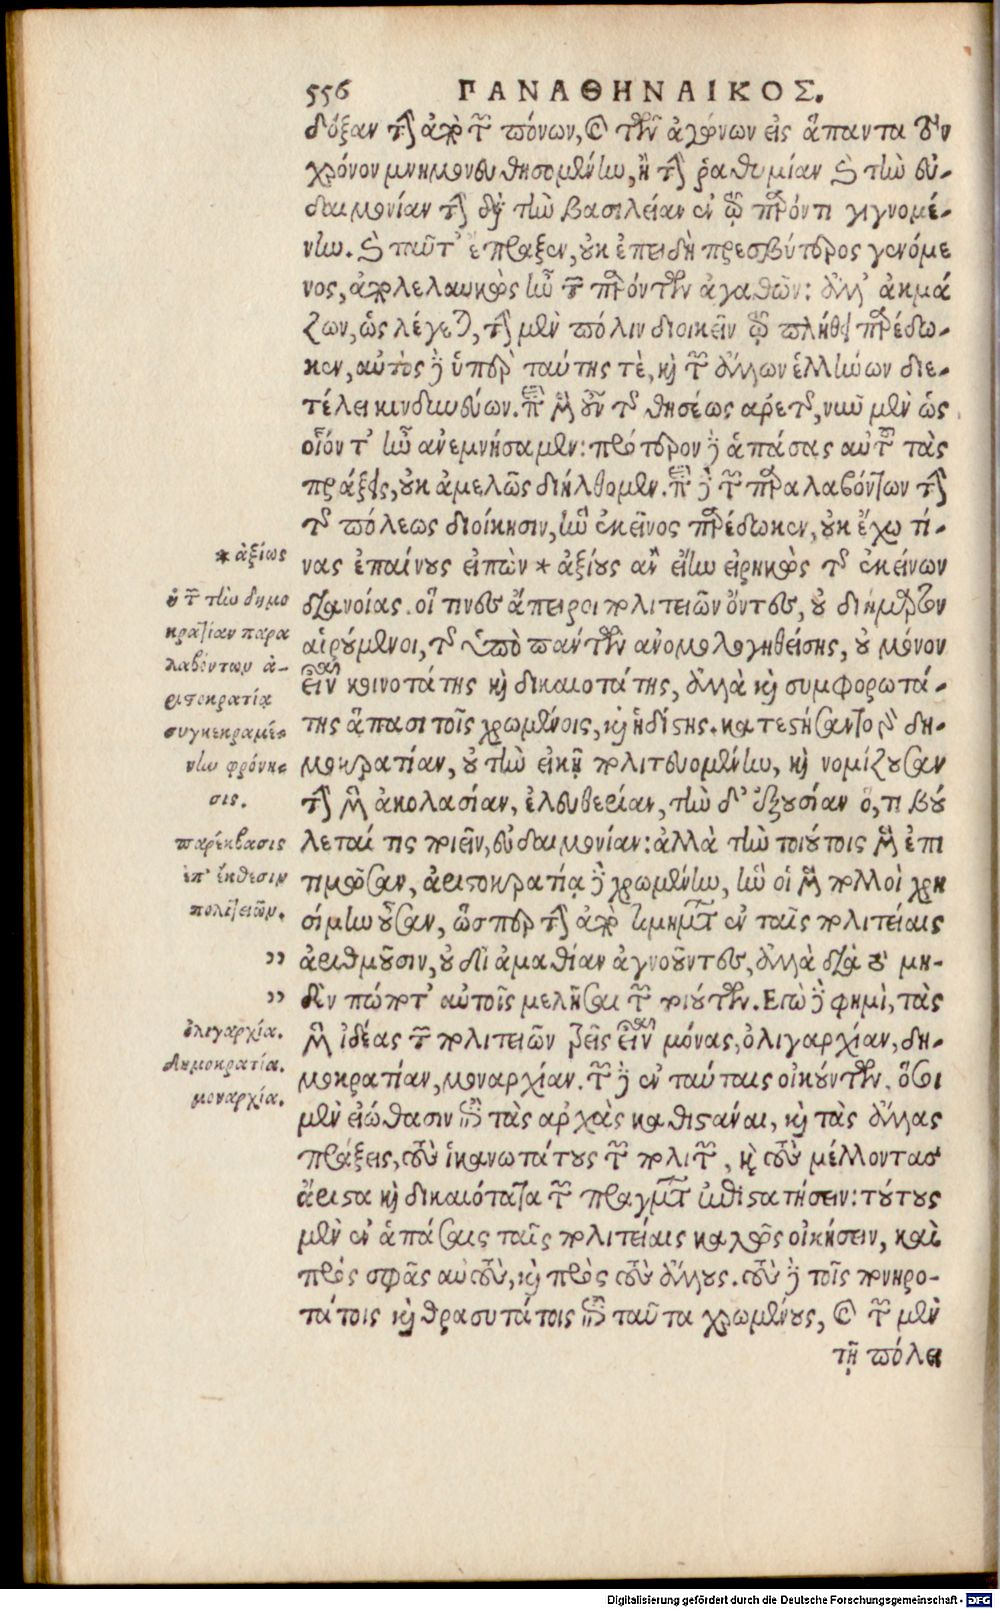 556 ΠΑΝΑΘΗΝΑΙΚΟΣ.
δόξαν τὴν ἀπὸ τῶν πόνων, καὶ τῶν ἀγώνων εἰς ἅπαντα τὸν
χρόνον μνημονευθησομένην, ἢ τὴν ῥαθυμίαν καὶ τὴν εὐ-
δαιμονίαν τὴν διὰ τὴν βασιλείαν ἐν τῷ παρόντι γιγνομέ-
νην. καὶ ταῦτ' ἔπραξεν, οὐκ ἐπειδὴ πρεσβύτερος γενόμε
νος, ἀπολελαυκὼς ἦν τῶν παρόντων ἀγαθῶν: ἀλλ' ἀκμά
ζων, ὡς λέγεται, τὴν μὲν πόλιν διοικεῖν τῷ πλήθει παρέδω-
κεν, αὐτὸς δὲ ὑπὲρ ταύτης τὲ, καὶ τῶν ἄλλων ἑλλήνων διε-
τέλει κινδυνεύων. περὶ μὲν οὖν τῆς θησέως ἀρετῆς, νῦν μὲν ὡς
οἷόν τ' ἦν ἀνεμνήσαμεν: πρότερον δὲ ἁπάσας αὐτοῦ τὰς
πράξεις, οὐκ ἀμελῶς διήλθομεν. περὶ δὲ τῶν παραλαβόντων τὴν
τῆς πόλεως διοίκησιν, ἣν ἐκεῖνος παρέδωκεν, οὐκ ἔχω τί-
νας ἐπαίνους εἰπὼν * ἀξίους ἂν εἴην εἰρηκὼς τῆς ἐκείνων
διανοίας. οἵ τινες ἄπειροι πολιτειῶν ὄντες, οὐ διήμαρτον
αἱρούμενοι, τῆς ὑπὸ πάντων ἀνομολογηθείσης, οὐ μόνον
εἶναι κοινοτάτης καὶ δικαιοτάτης, ἀλλὰ καὶ συμφορωτά-
της ἅπασι τοῖς χρωμένοις, καὶ ἡδίστης. κατεστήσαντο γὰρ δη-
μοκρατίαν, οὐ τὴν εἰκῆ πολιτευομένην, καὶ νομίζουσαν
τὴν μὲν ἀκολασίαν, ἐλευθερίαν, τὴν δ' ἐξουσίαν ὅ,τι βού
λεταί τις ποιεῖν, εὐδαιμονίαν: ἀλλὰ τὴν τοιούτοις μὲν ἐπι
τιμῶσαν, ἀριστοκρατίᾳ δὲ χρωμένην, ἣν οἱ μὲν πολλοὶ χρη
σίμην οὖσαν, ὥσπερ τὴν ἀπὸ τιμημάτων ἐν ταῖς πολιτείαις
ἀριθμοῦσιν, οὐ δι' ἀμαθίαν ἀγνοοῦντες, ἀλλὰ διὰ τὸ μη-
δὲν πώποτ' αὐτοῖς μελῆσαι τῶν δεόντων. Ἐγὼ δὲ φημὶ, τὰς
μὲν ἰδέας τῶν πολιτειῶν τρεῖς εἶναι μόνας, ὀλιγαρχίαν, δη-
μοκρατίαν, μοναρχίαν. τῶν δὲ ἐν ταύταις οἰκούντων, ὅσοι
μὲν εἰώθασιν ἐπὶ τὰς ἀρχὰς καθιστάναι, καὶ τὰς ἄλλας
πράξεις, τοὺς ἱκανωτάτους τῶν πολιτῶν, καὶ τοὺς μέλλοντας
ἄριστα καὶ δικαιότατα τῶν πραγμάτων ἐπιστατήσειν: τούτους
μὲν ἐν ἁπάσαις ταῖς πολιτείαις καλῶς οἰκήσειν, καὶ
πρὸς σφᾶς αὐτοὺς, καὶ πρὸς τοὺς ἄλλους. τοὺς δὲ τοῖς πονηρο-
τάτοις καὶ θρασυτάτοις ἐπὶ ταῦτα χρωμένους, καὶ τῶν μὲν
τῇ πόλει
* ἀξίως
ἡ τῶν τὴν δημο
κρατίαν παρα
λαβόντων ἀ-
ριστοκρατίᾳ
συγκεκραμέ-
νην φρόνη-
σις.
παρέκβασις
ἐπ' ἔκθεσιν
πολιτειῶν.
,,
,,
ὀλιγαρχία.
δημοκρατία.
μοναρχία.
Digitalisierung gefördert durch die Deutsche Forschungsgemeinschaft - DFG